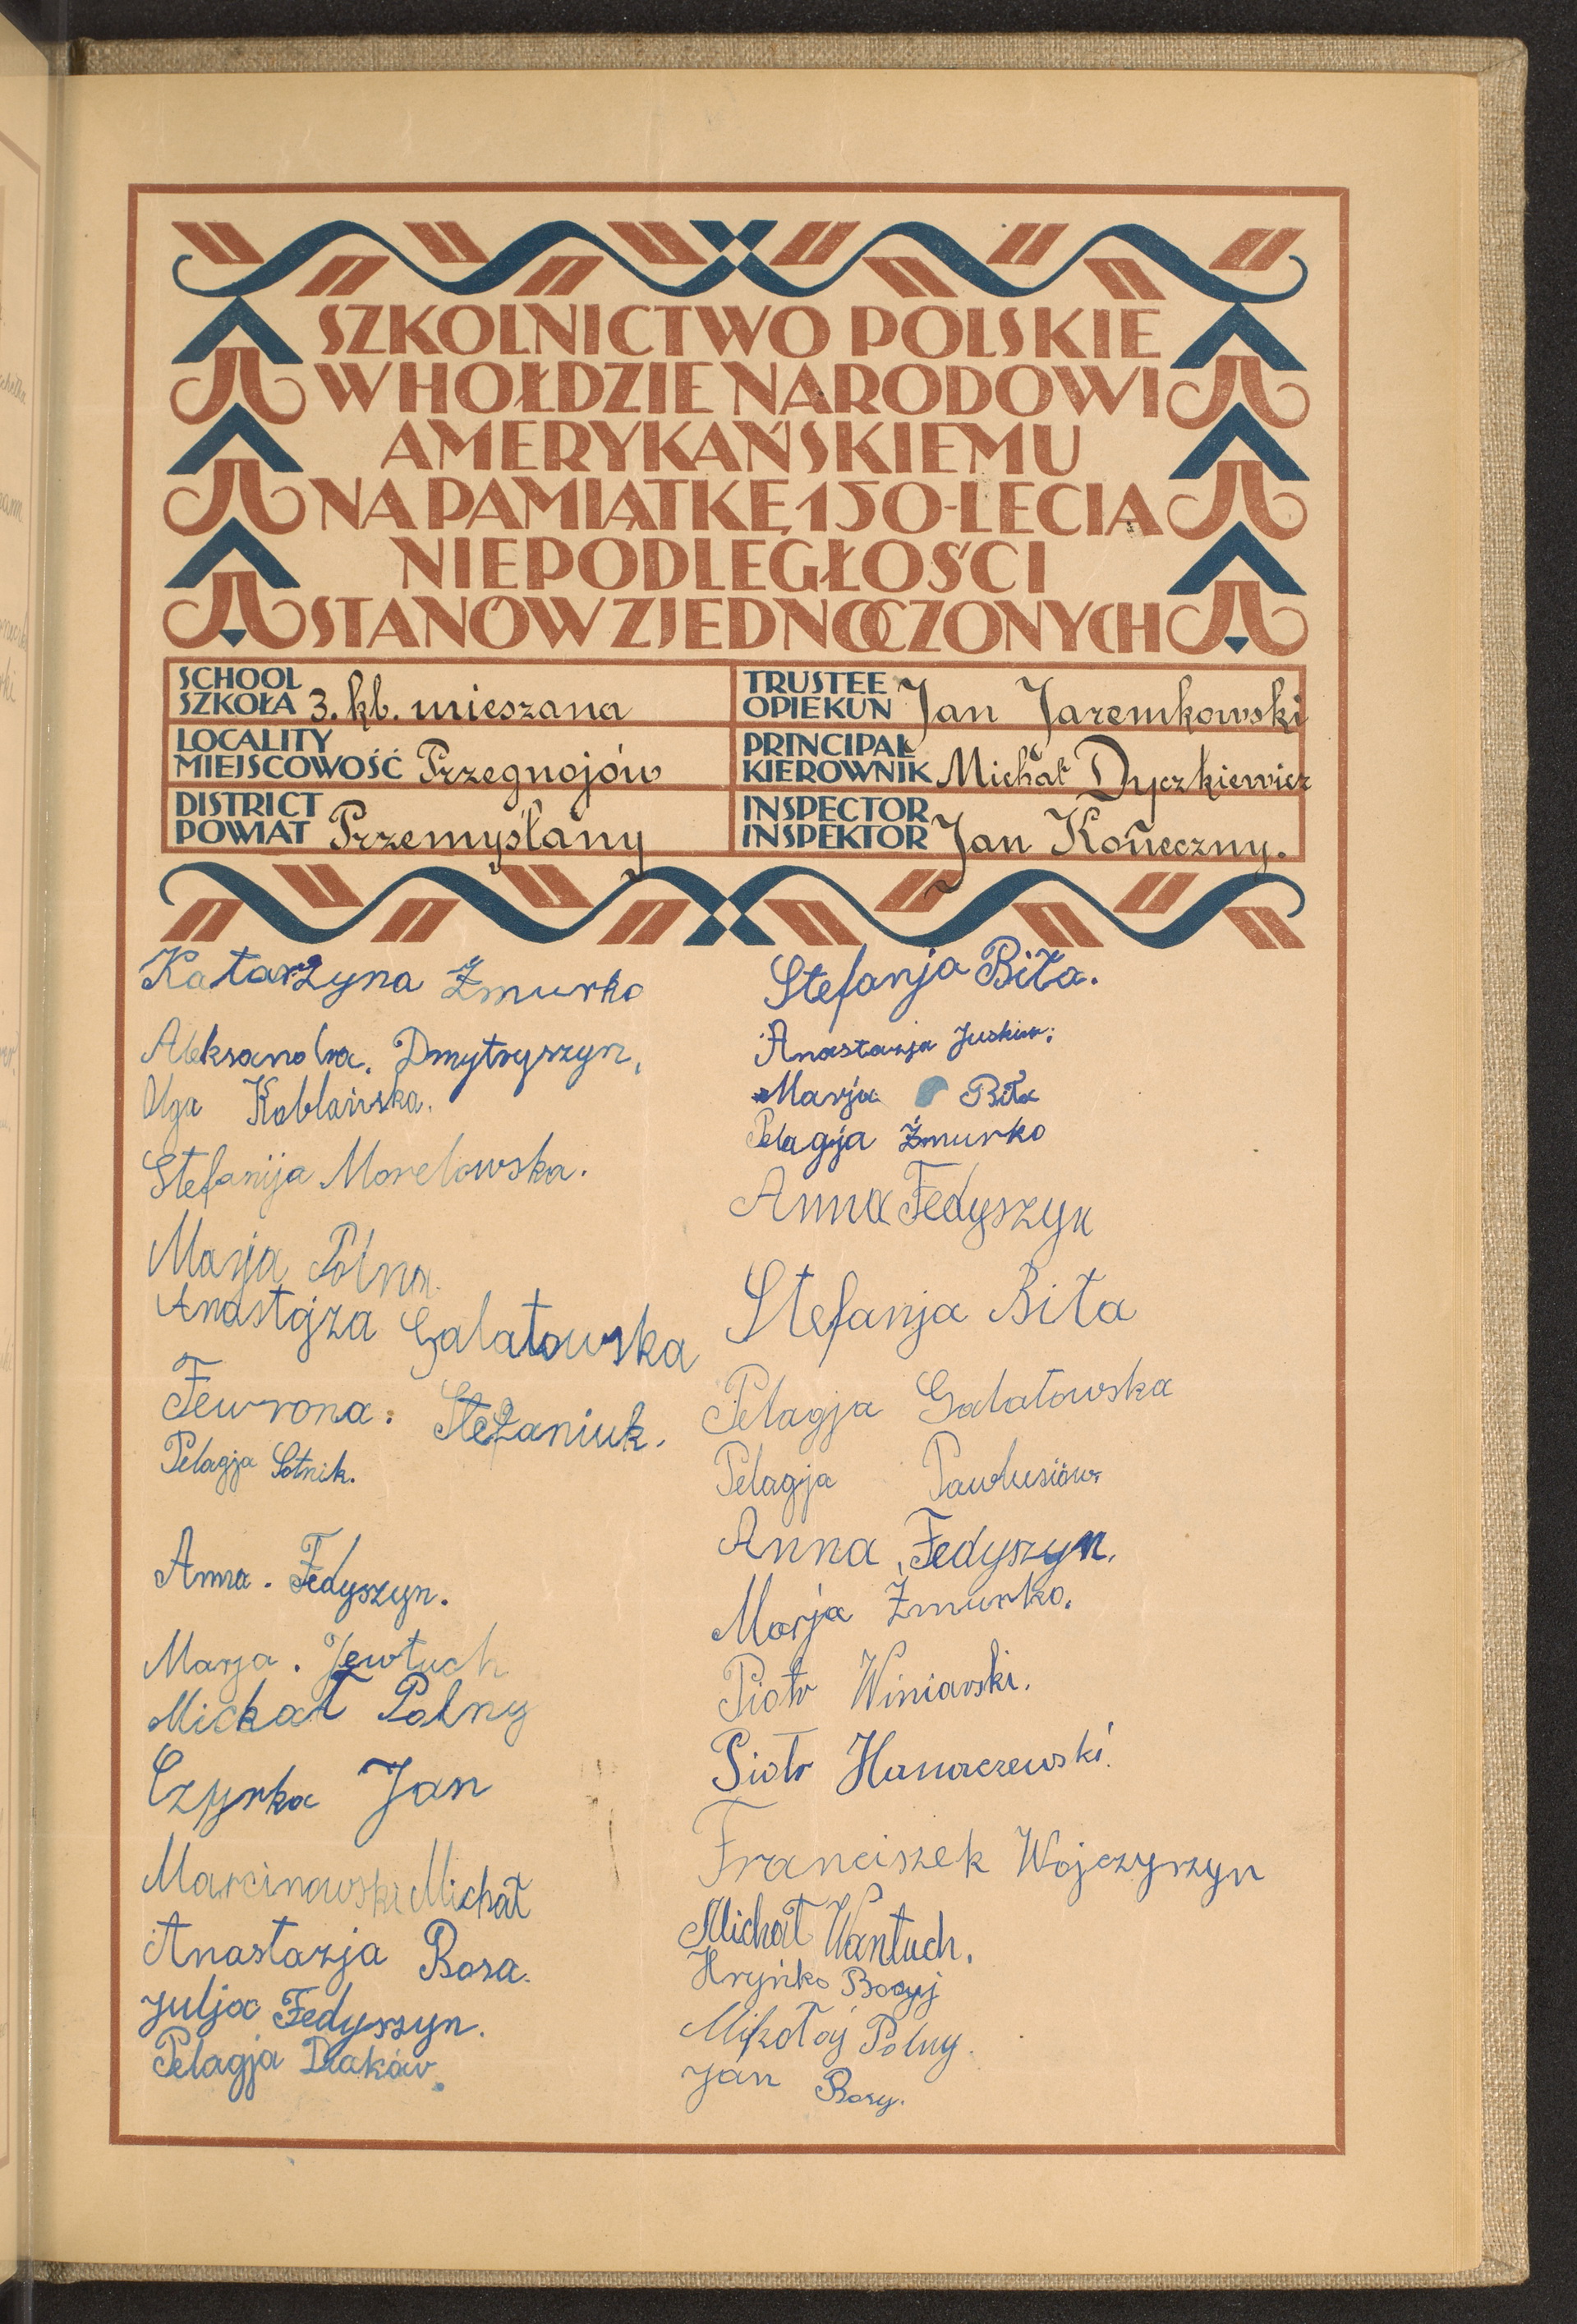 SZKOLNICTWO POLSKIE
W HOŁDZIE NARODOWI
AMERYKAŃSKIEMU
NA PAMIĄTKĘ 150-LECIA
NIEPODLEGŁOŚCI
STANÓW ZJEDNOCZONYCH
SCHOOL
SZKOŁA 3. kl. mieszana
LOCALITY
MIEJSCOWOŚĆ Przegnojów
DISTRICT
POWIAT Przemyślany
TRUSTEE
OPIEKUN Jan Jaremkowski
PRINCIPAŁ
KIEROWNIK Michał Dyczkiewicz
INSPECTOR
INSPEKTOR Jan Koneczny.
Katarzyna Żmurko
Aleksandra. Dmytryszyn,
Olga Koblańska.
Stefanija Morelowska.
Marja Polna.
Anastajza Galatowska
Fewrona. Stefaniuk.
Pelagja Sotnik.
Anna. Fedyszyn.
Marja. Jewtuch
Michał Polny
Czyrka Jan
Marcinowski Michał
Anastazja Bosa.
Julja Fedyszyn.
Pelagja Diaków.
Stefanja Biła.
Anastazja Juskiw.
Marja Biła
Pelagja Żmurko
Anna Fedyszyn
Stefanja Biła
Pelagja Galatowska
Pelagja Pawlusiów
Anna, Fedyszyn.
Marja Żmurko.
Piotr Winiarski.
Piotr Hanaczewski.
Franciszek Wojczyszyn
Michał Wantuch.
Hryńko
Mikołaj Polny.
Jan Bosy.